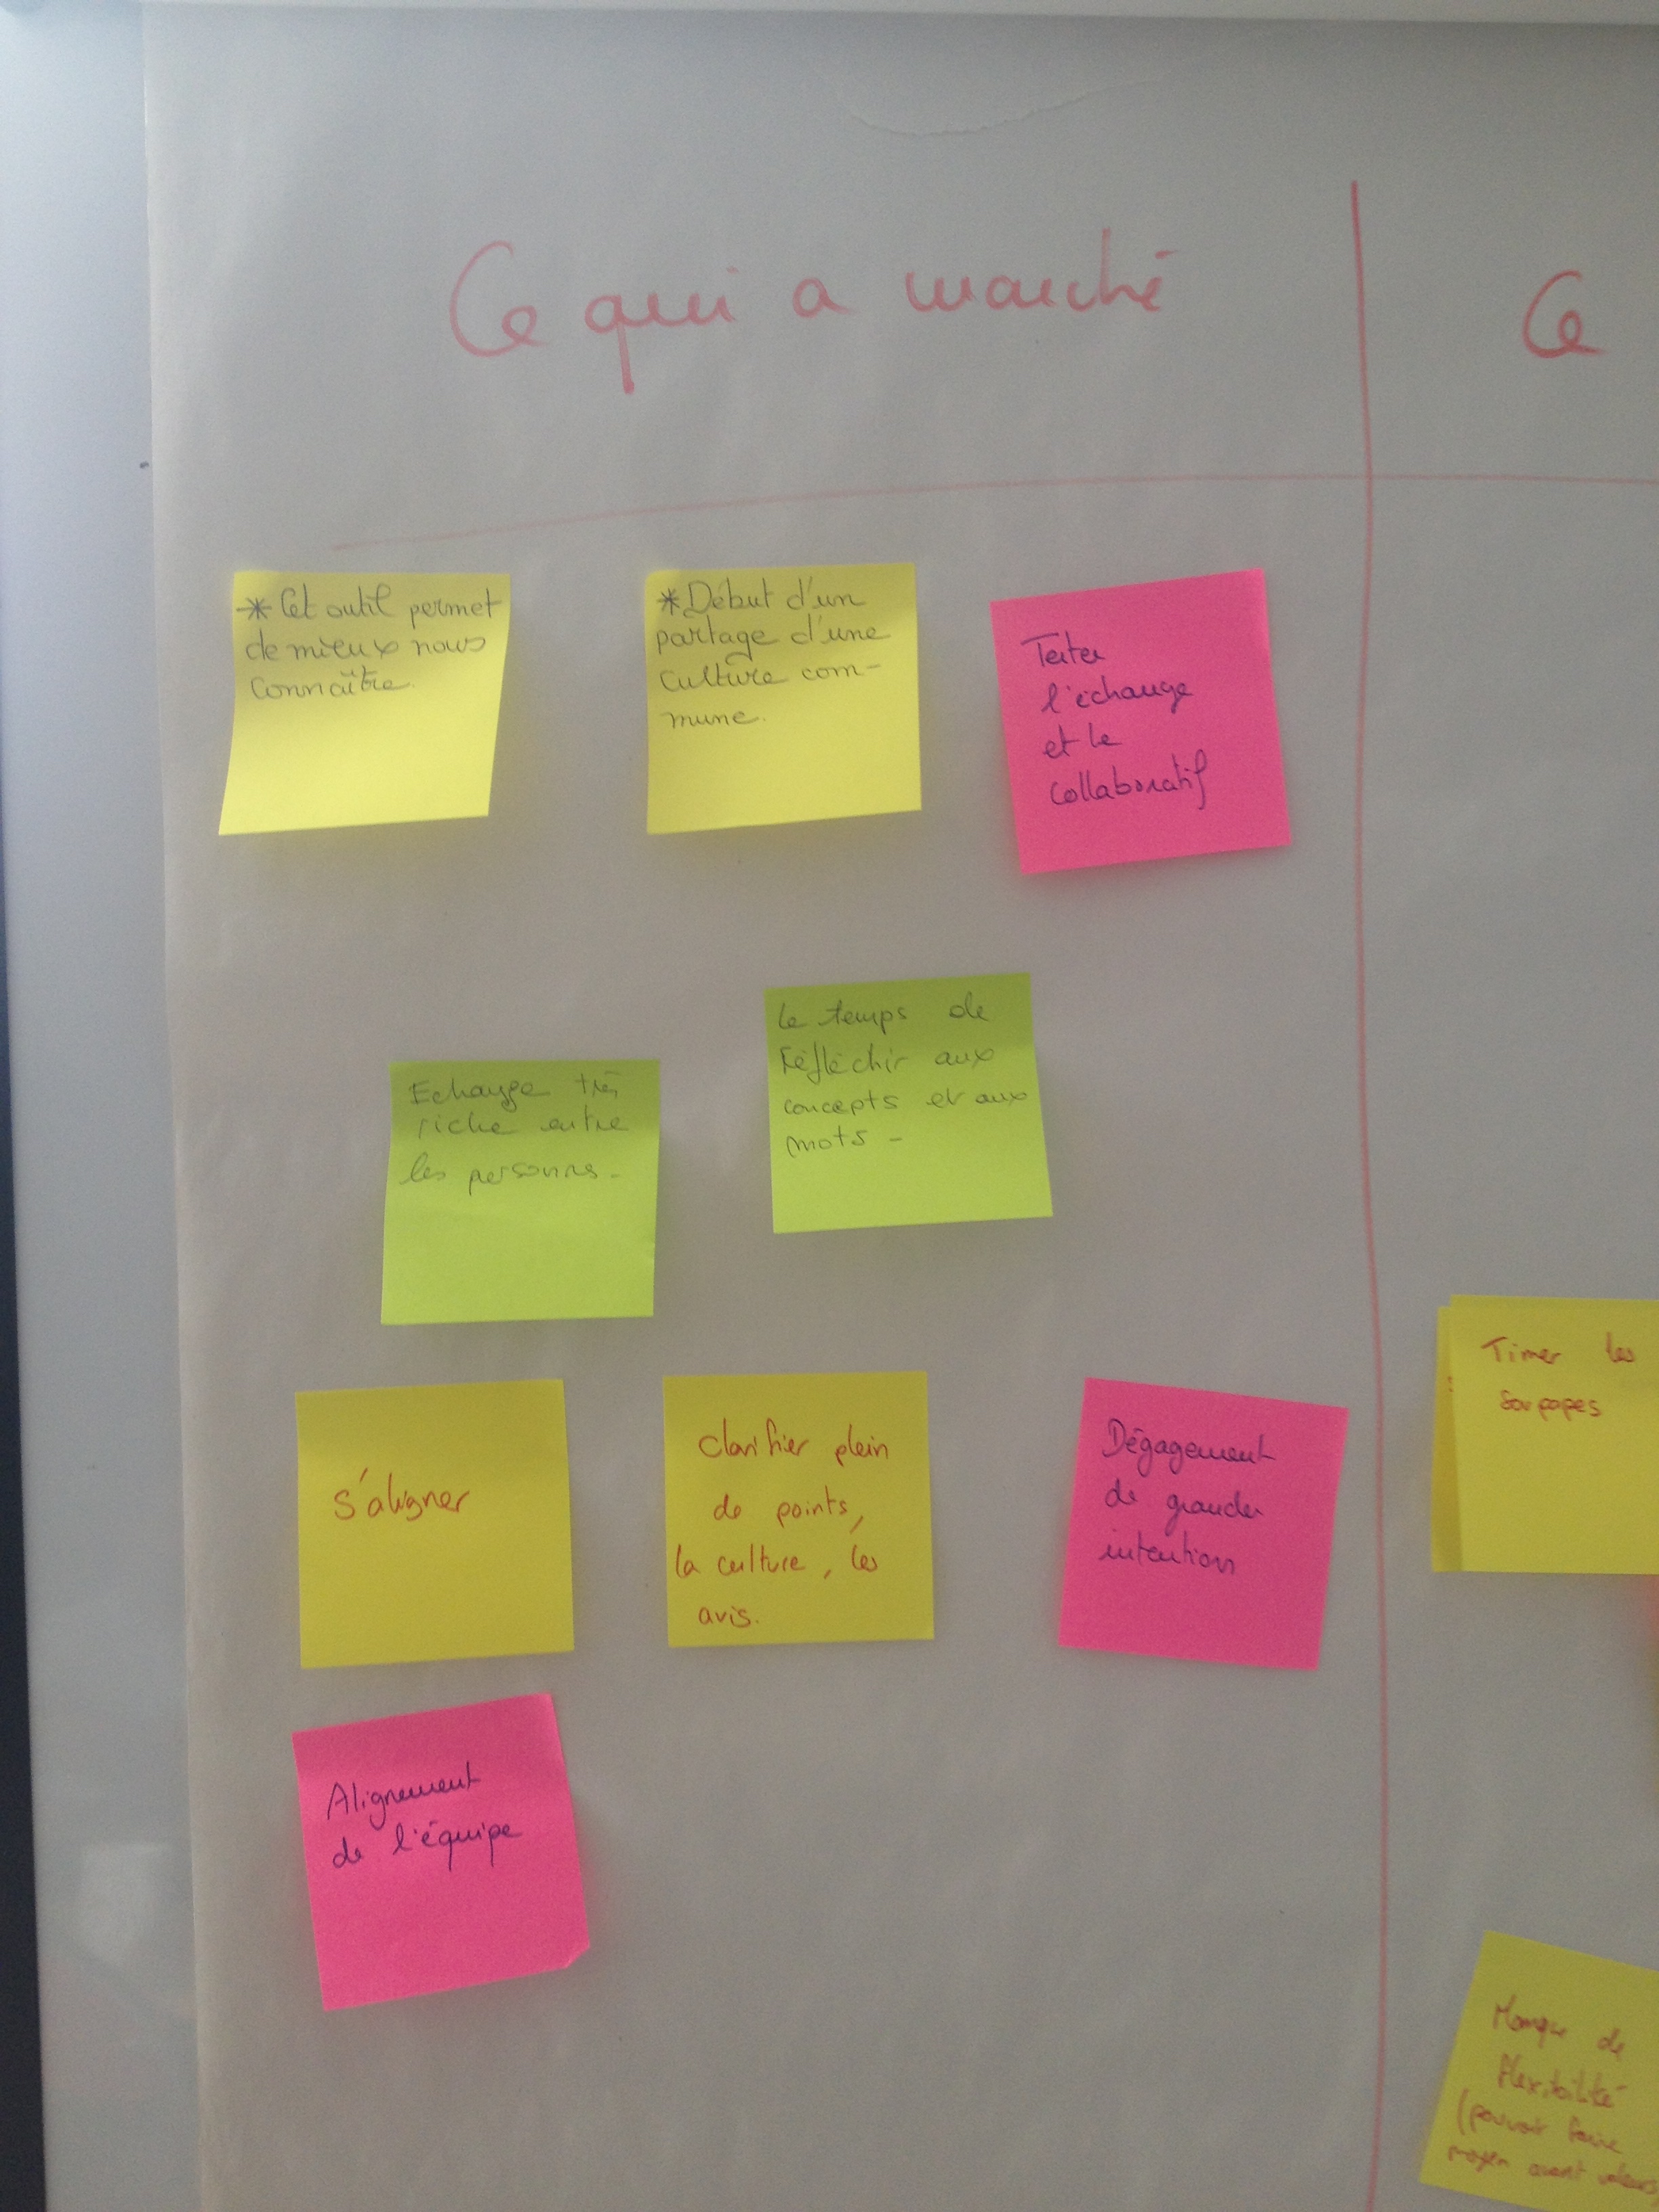 Ce qui a marché
Ce
* Cet outil permet
de mieux nous
connaître.
* Début d'un
partage d'une
culture com-
mune.
Tester
l'échange
et le
collaboratif
Echange très
riche entre
les personnes -
Le temps de
réfléchir aux
concepts et aux
mots -
s'aligner
Clarifier plein
de points,
la culture, les
avis.
Dégagement
de grandes
intentions
Alignement
de l'équipe
Timer les
soupapes
Manque de
flexibilité
(pouvoir faire
moyen avant valeurs